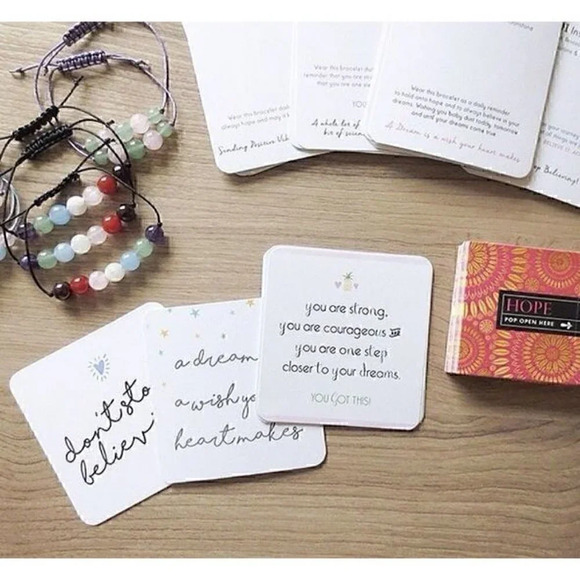 Wear this bracelet
always hope and may it
Sending Positive Vib
Wear this bracelet as a daily
reminder that you are
that you are one st
YOU
A whole lot of
bit of
Wear this bracelet as a daily reminder
to hold onto hope and to always believe in your
dreams. Wishing you baby dust today, tomorrow
and until your dreams come true
A Dream is a wish your heart makes
Wear this
reminder
your
BELIEVE
op Believing!
HOPE
POP OPEN HERE
you are strong,
you are courageous and
you are one step
closer to your dreams.
YOU GOT THIS!
a dream
a wish yo
heart makes
don't sto
believi